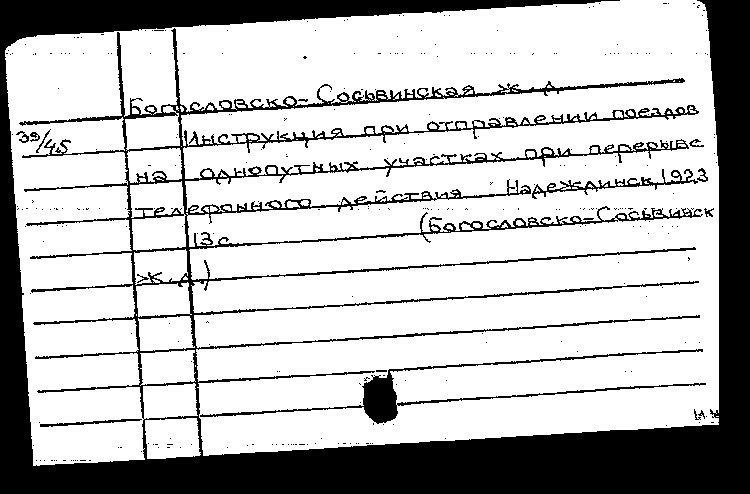 Богословско-Сосьвинская ж. д
39/45
Инструкция при отправлении поездов
на однопутных участках при перерыве
телефонного действия. Надеждинск, 1923
13с (Богословско-Сосьвинск
ж. д.)